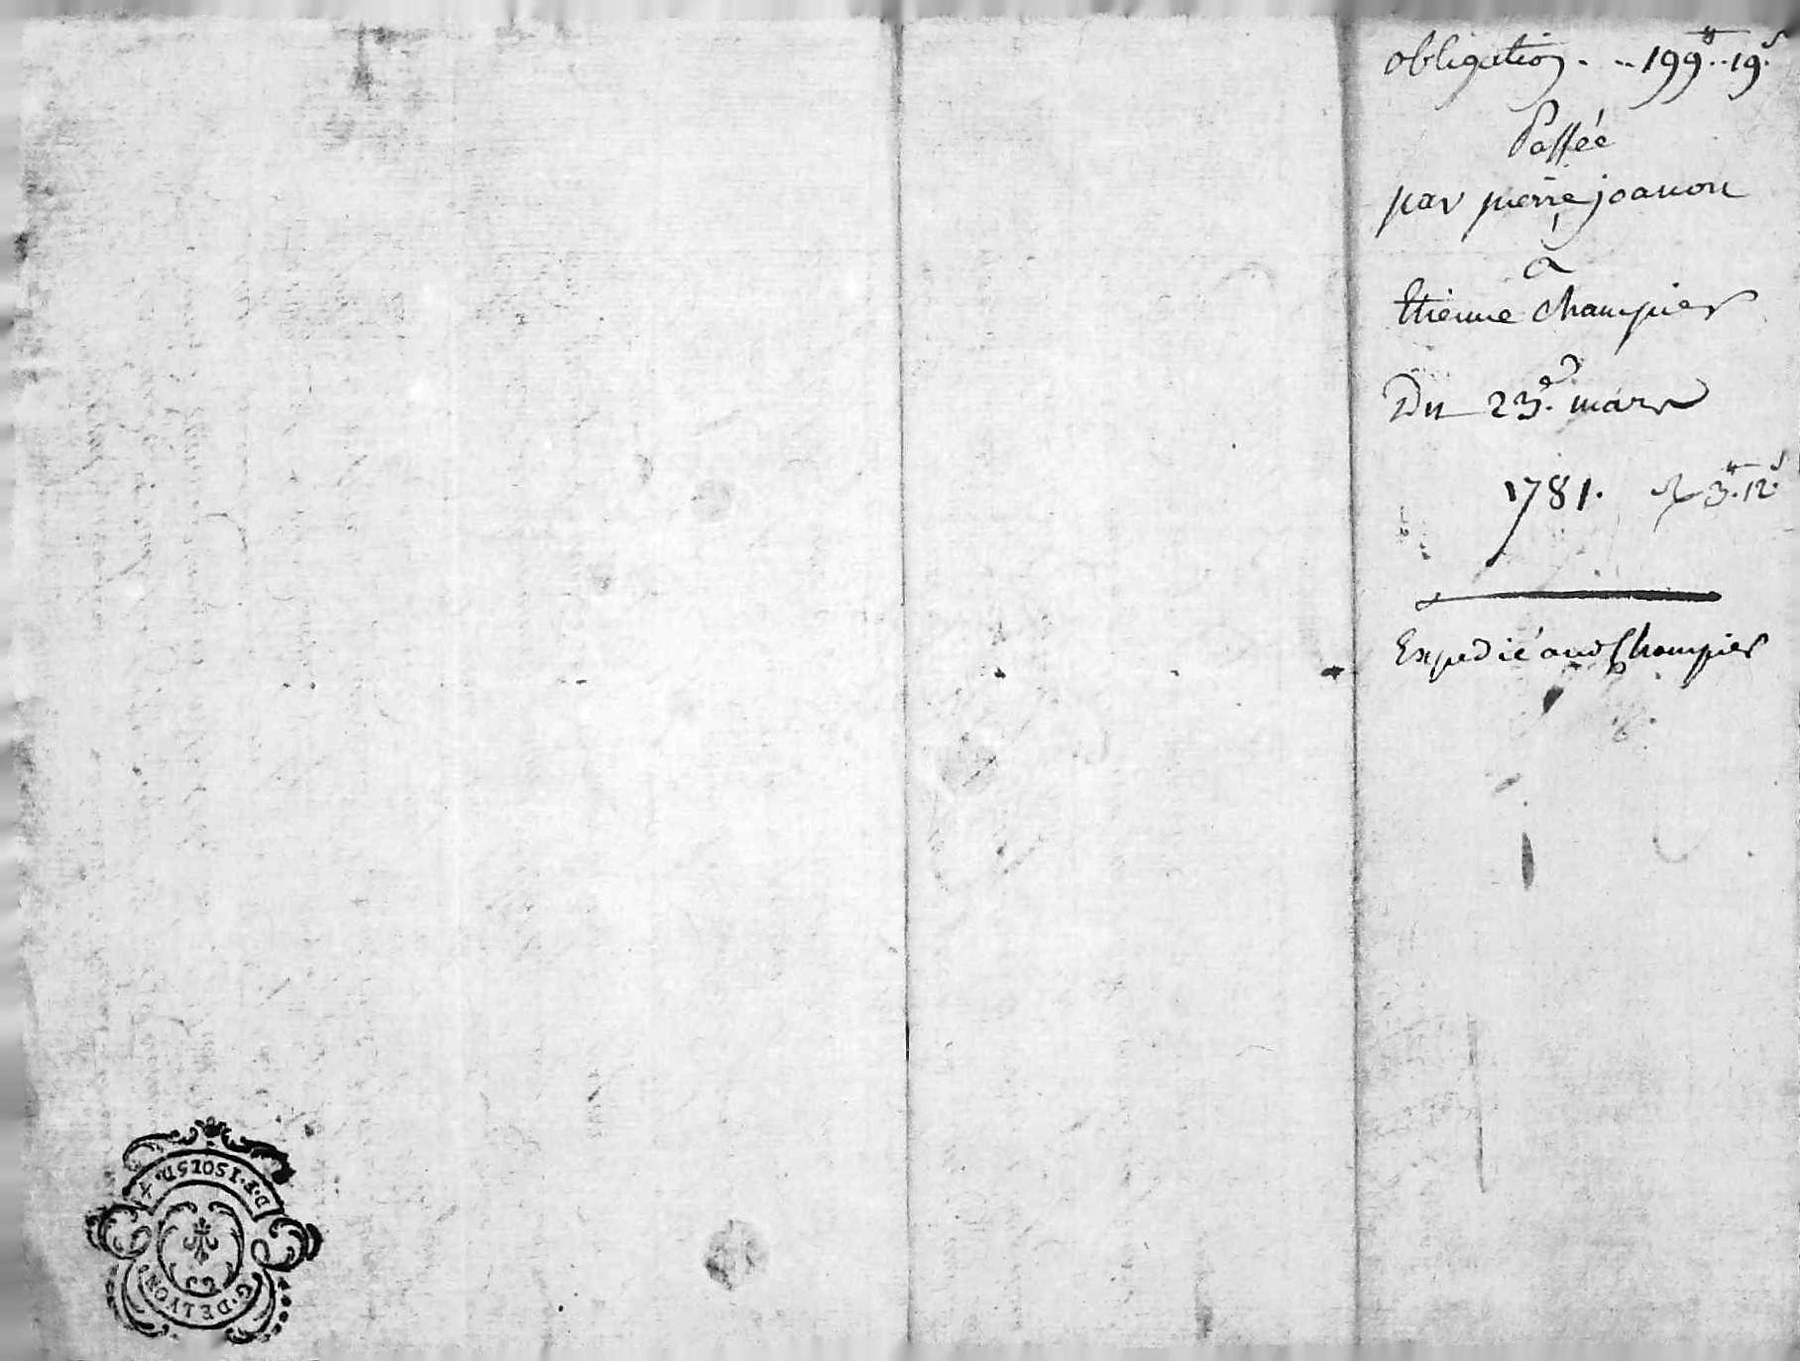 obligation . .. 199^# .. 19.^s
Passée
par pierre joanon
a
Etienne Champier
Du 23.^e mars
1781. 3^#. 12.^s
Expedié aud Champier
G. DE LYON